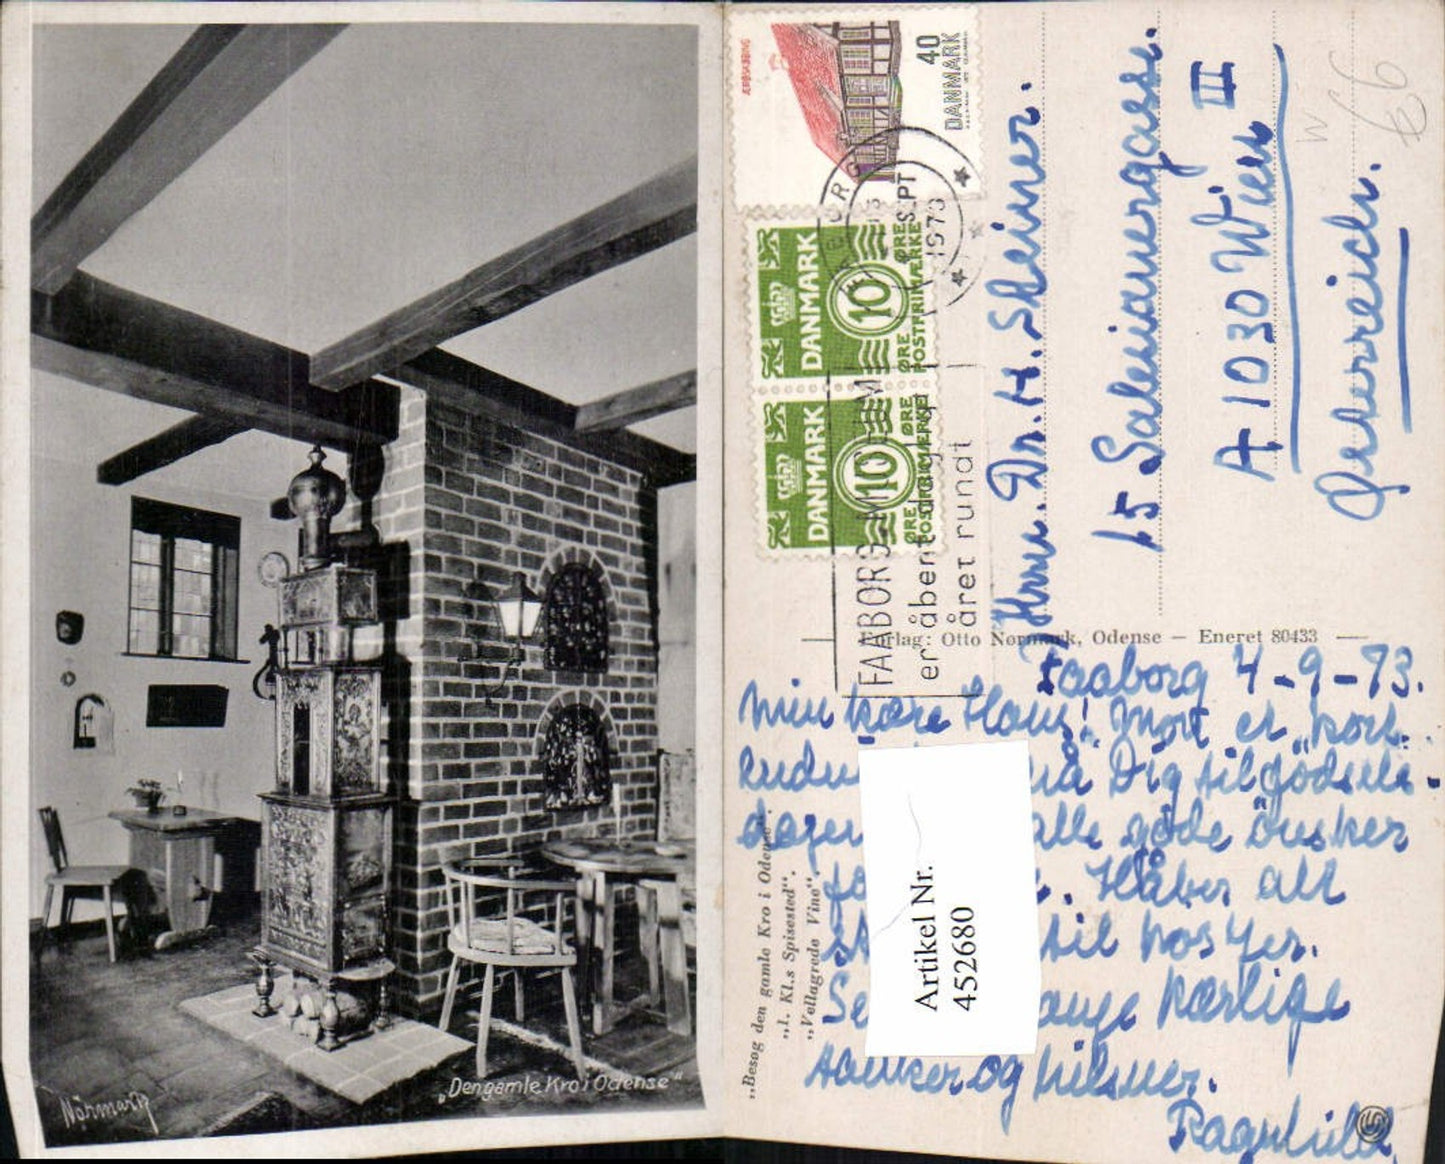 „Den gamle Kro i Odense“
Nørmark
ÆRØSKØBING
40
DANMARK
DANMARK
10
ØRE
ØRE
POSTFRIMÆRKE
DANMARK
10
ØRE
ØRE
POSTFRIMÆRKE
SEPT
1973
FAABORG
er åbent
året rundt
Hrn. Dr. H. Steiner.
15 Salesianergasse.
A 1030 Wien III
Oesterreich.
Forlag: Otto Nørmark, Odense — Eneret 80433
„Besøg den gamle Kro i Odense“.
„1. Kl.s Spisested“.
„Vellagrede Vine“.
Faaborg 4-9-73.
Min kære Hans! Mort er kort
på Dig til födsels-
dagen alle gode önsker
Håber alt
til hos Jer.
kærlige
tanker og hilsner.
Ragnhild.
Artikel Nr.
452680
W